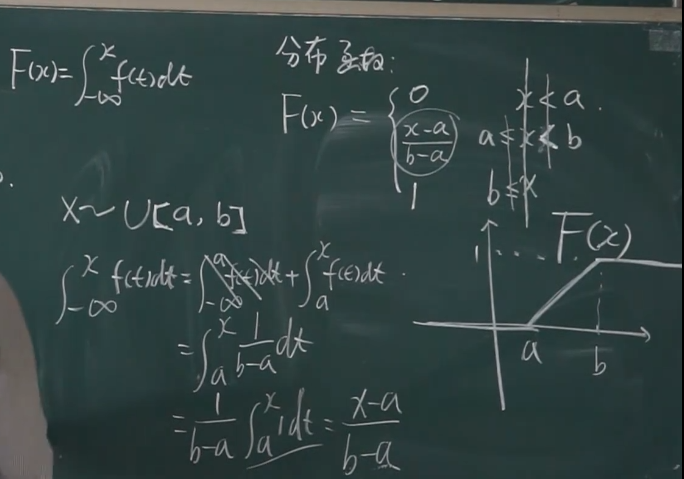 F(x)=∫_{-∞}^{x} f(t)dt
分布函数:
F(x) = { 0   x < a.
(x-a)/(b-a)   a ≤ x < b
1   b ≤ x
X ~ U[a, b]
∫_{-∞}^{x} f(t)dt = ∫_{-∞}^{a} f(t)dt + ∫_{a}^{x} f(t)dt.
= ∫_{a}^{x} 1/(b-a) dt
= 1/(b-a) ∫_{a}^{x} 1dt = (x-a)/(b-a)
F(x)
1
a
b